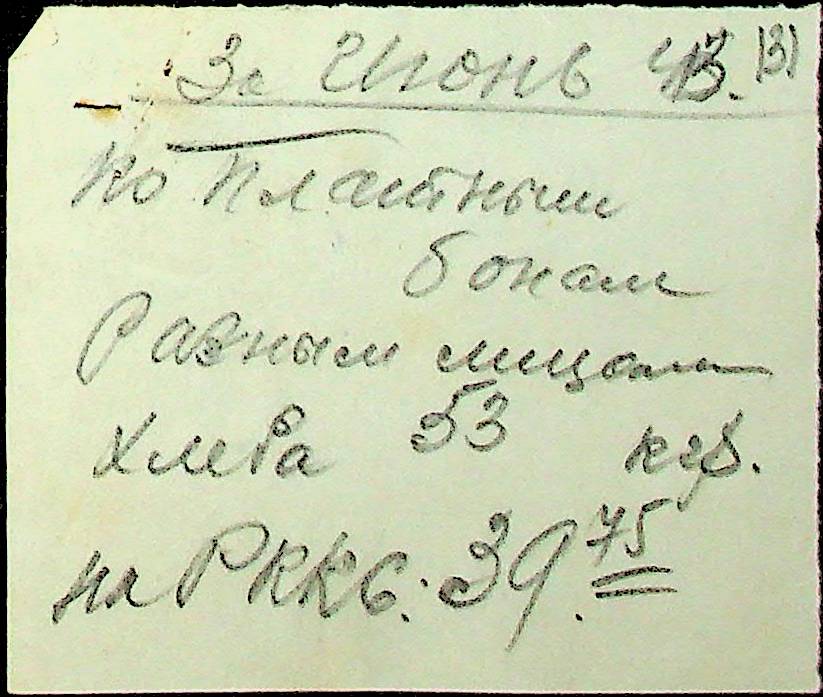 За Июнь 43. (3)
по платным
бонам
Разным лицам
хлеба 53 кгр.
на РККС. 39.75